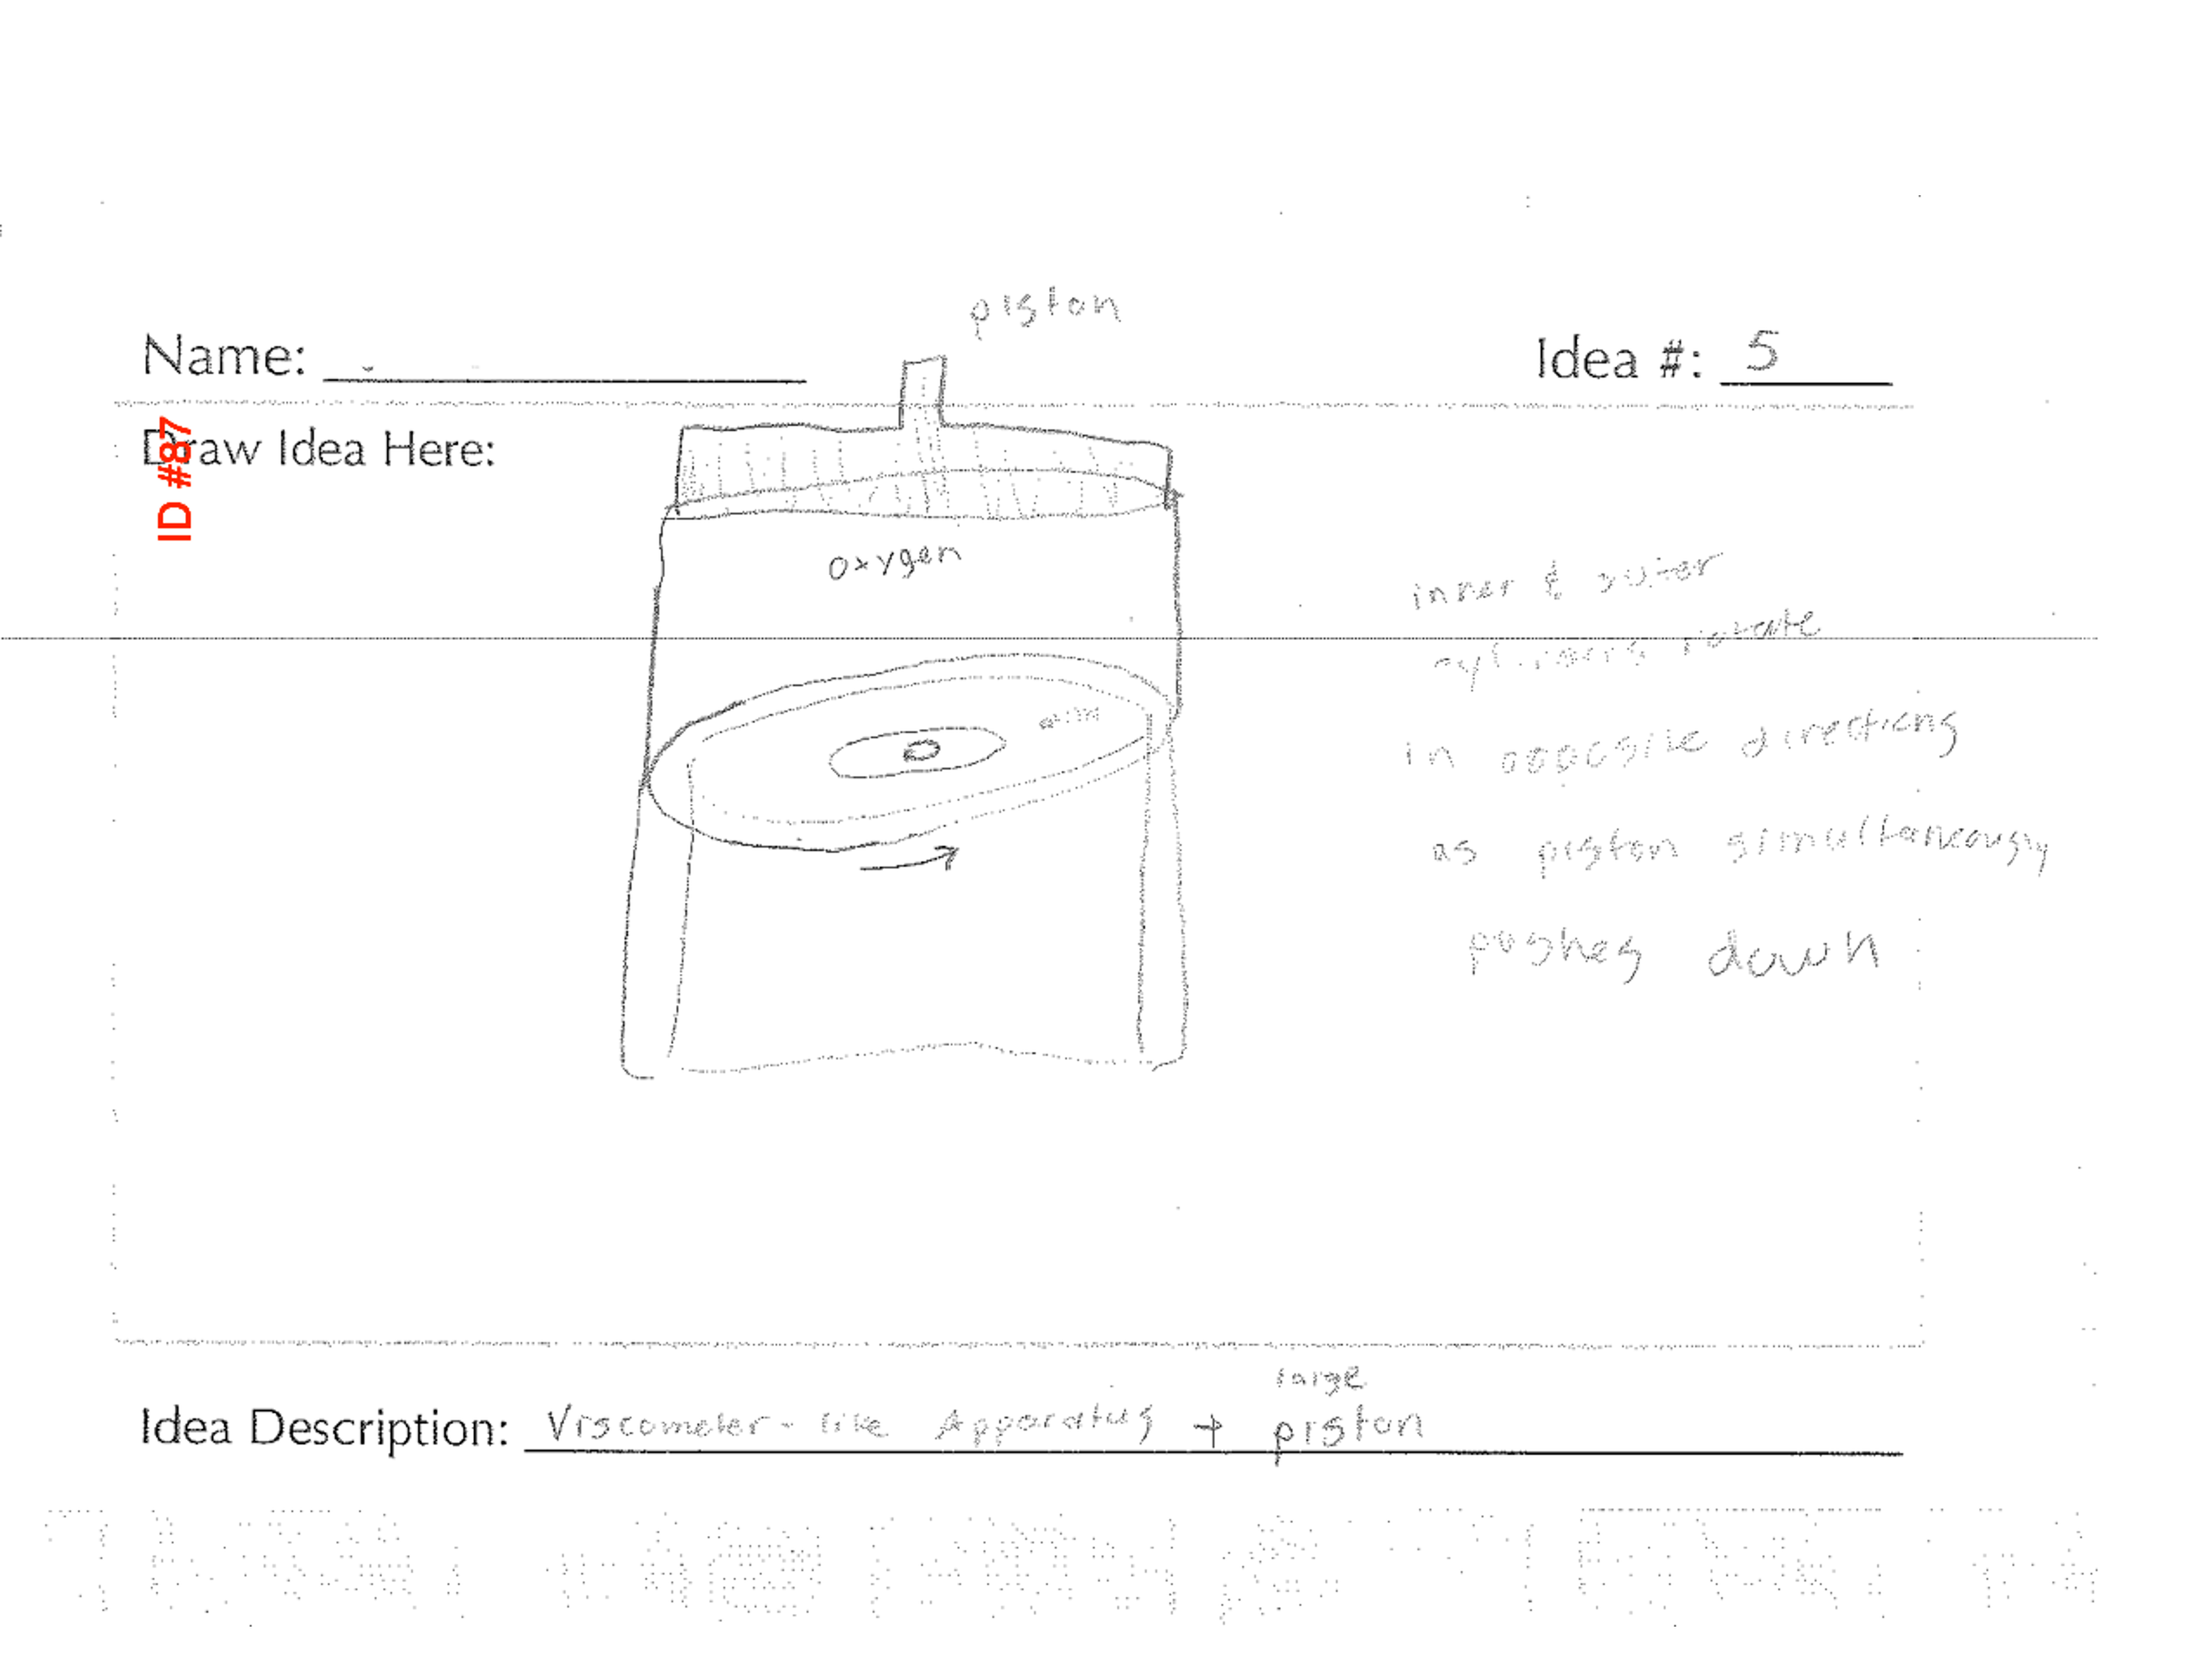 piston
Name:
Idea #: 5
ID #87
Draw Idea Here:
oxygen
inner & outer
cylinders rotate
in opposite directions
as piston simultaneously
pushes down
large
Idea Description: Viscometer-like Apparatus + piston